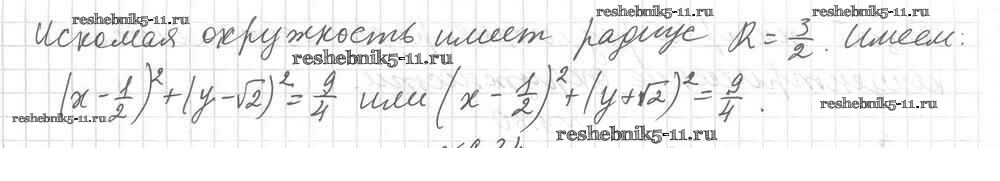 reshebnik5-11.ru reshebnik5-11.ru
Искомая окружность имеет радиус R = 3/2. Имеем:
reshebnik5-11.ru
(x - 1/2)² + (y - √2)² = 9/4 или (x - 1/2)² + (y + √2)² = 9/4.
reshebnik5-11.ru reshebnik5-11.ru
reshebnik5-11.ru